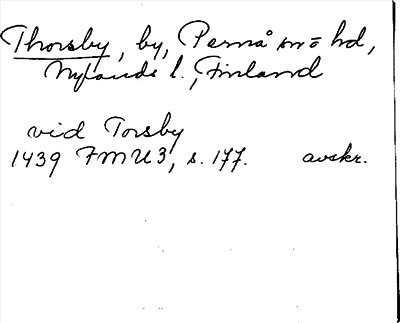 Thorsby, by, Pernå sn o hd,
Nylands l., Finland
vid Torsby
1439 FMU 3, s. 177. avskr.